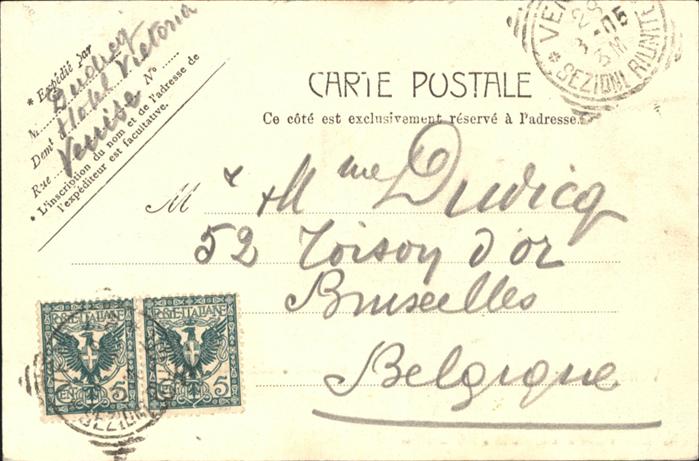 * Expédié par
M Duvicq
Demt Hotel Victoria
Rue Venise No
* L'inscription du nom et de l'adresse de
l'expéditeur est facultative.
VEN
3 -05
* SEZIONI RIUNITE
CARTE POSTALE
Ce côté est exclusivement réservé à l'adresse.
M r & Mme Duvicq
52 Toison d'or
Bruxelles
Belgique
POSTE ITALIANE POSTE ITALIANE
CENT 5 5
SEZIONI